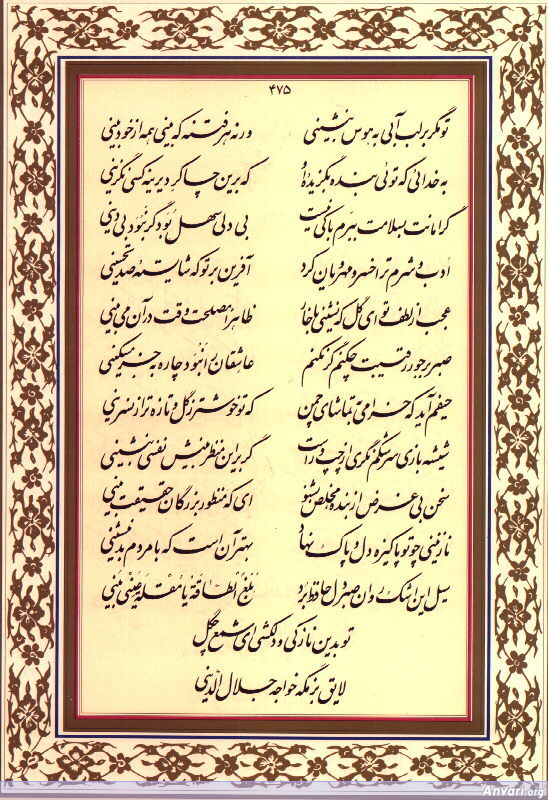 ۴۷۵
تو مگر بر لب آبی به هوس بنشینی ورنه هر فتنه که بینی همه از خود بینی
به خدائی که توئی بنده بگزیده او که برین چاکر دیرینه کسی نگزینی
گر امانت بسلامت ببرم باکی نیست بی دلی سهل بود گر نبود بی دینی
ادب و شرم ترا خسرو مهرویان کرد آفرین بر تو که شایسته صد تحسینی
عجب از لطف تو ای گل که نشینی با خار ظاهرا مصلحت وقت در آن می بینی
صبر بر جور رقیبت چکنم گر نکنم عاشقان را نبود چاره به جز مسکینی
حیفم آید که خرامی به تماشای چمن که تو خوشتر ز گل و تازه تر از نسرینی
شیشه بازی سرشکم نگری از چپ و راست گر برین منظر بینش نفسی بنشینی
سخن بی غرض از بنده مخلص بشنو ای که منظور بزرگان حقیقت بینی
نازنینی چو تو پاکیزه دل و پاک نهاد بهتر آن است که با مردم بد ننشینی
سیل این اشک روان صبر دل حافظ برد بلغ الطاقة یا مقلة عینی بینی
تو بدین نازکی و دلکشی ای شمع چگل
لایق بزمگه خواجه جلال الدینی
Anvari.org